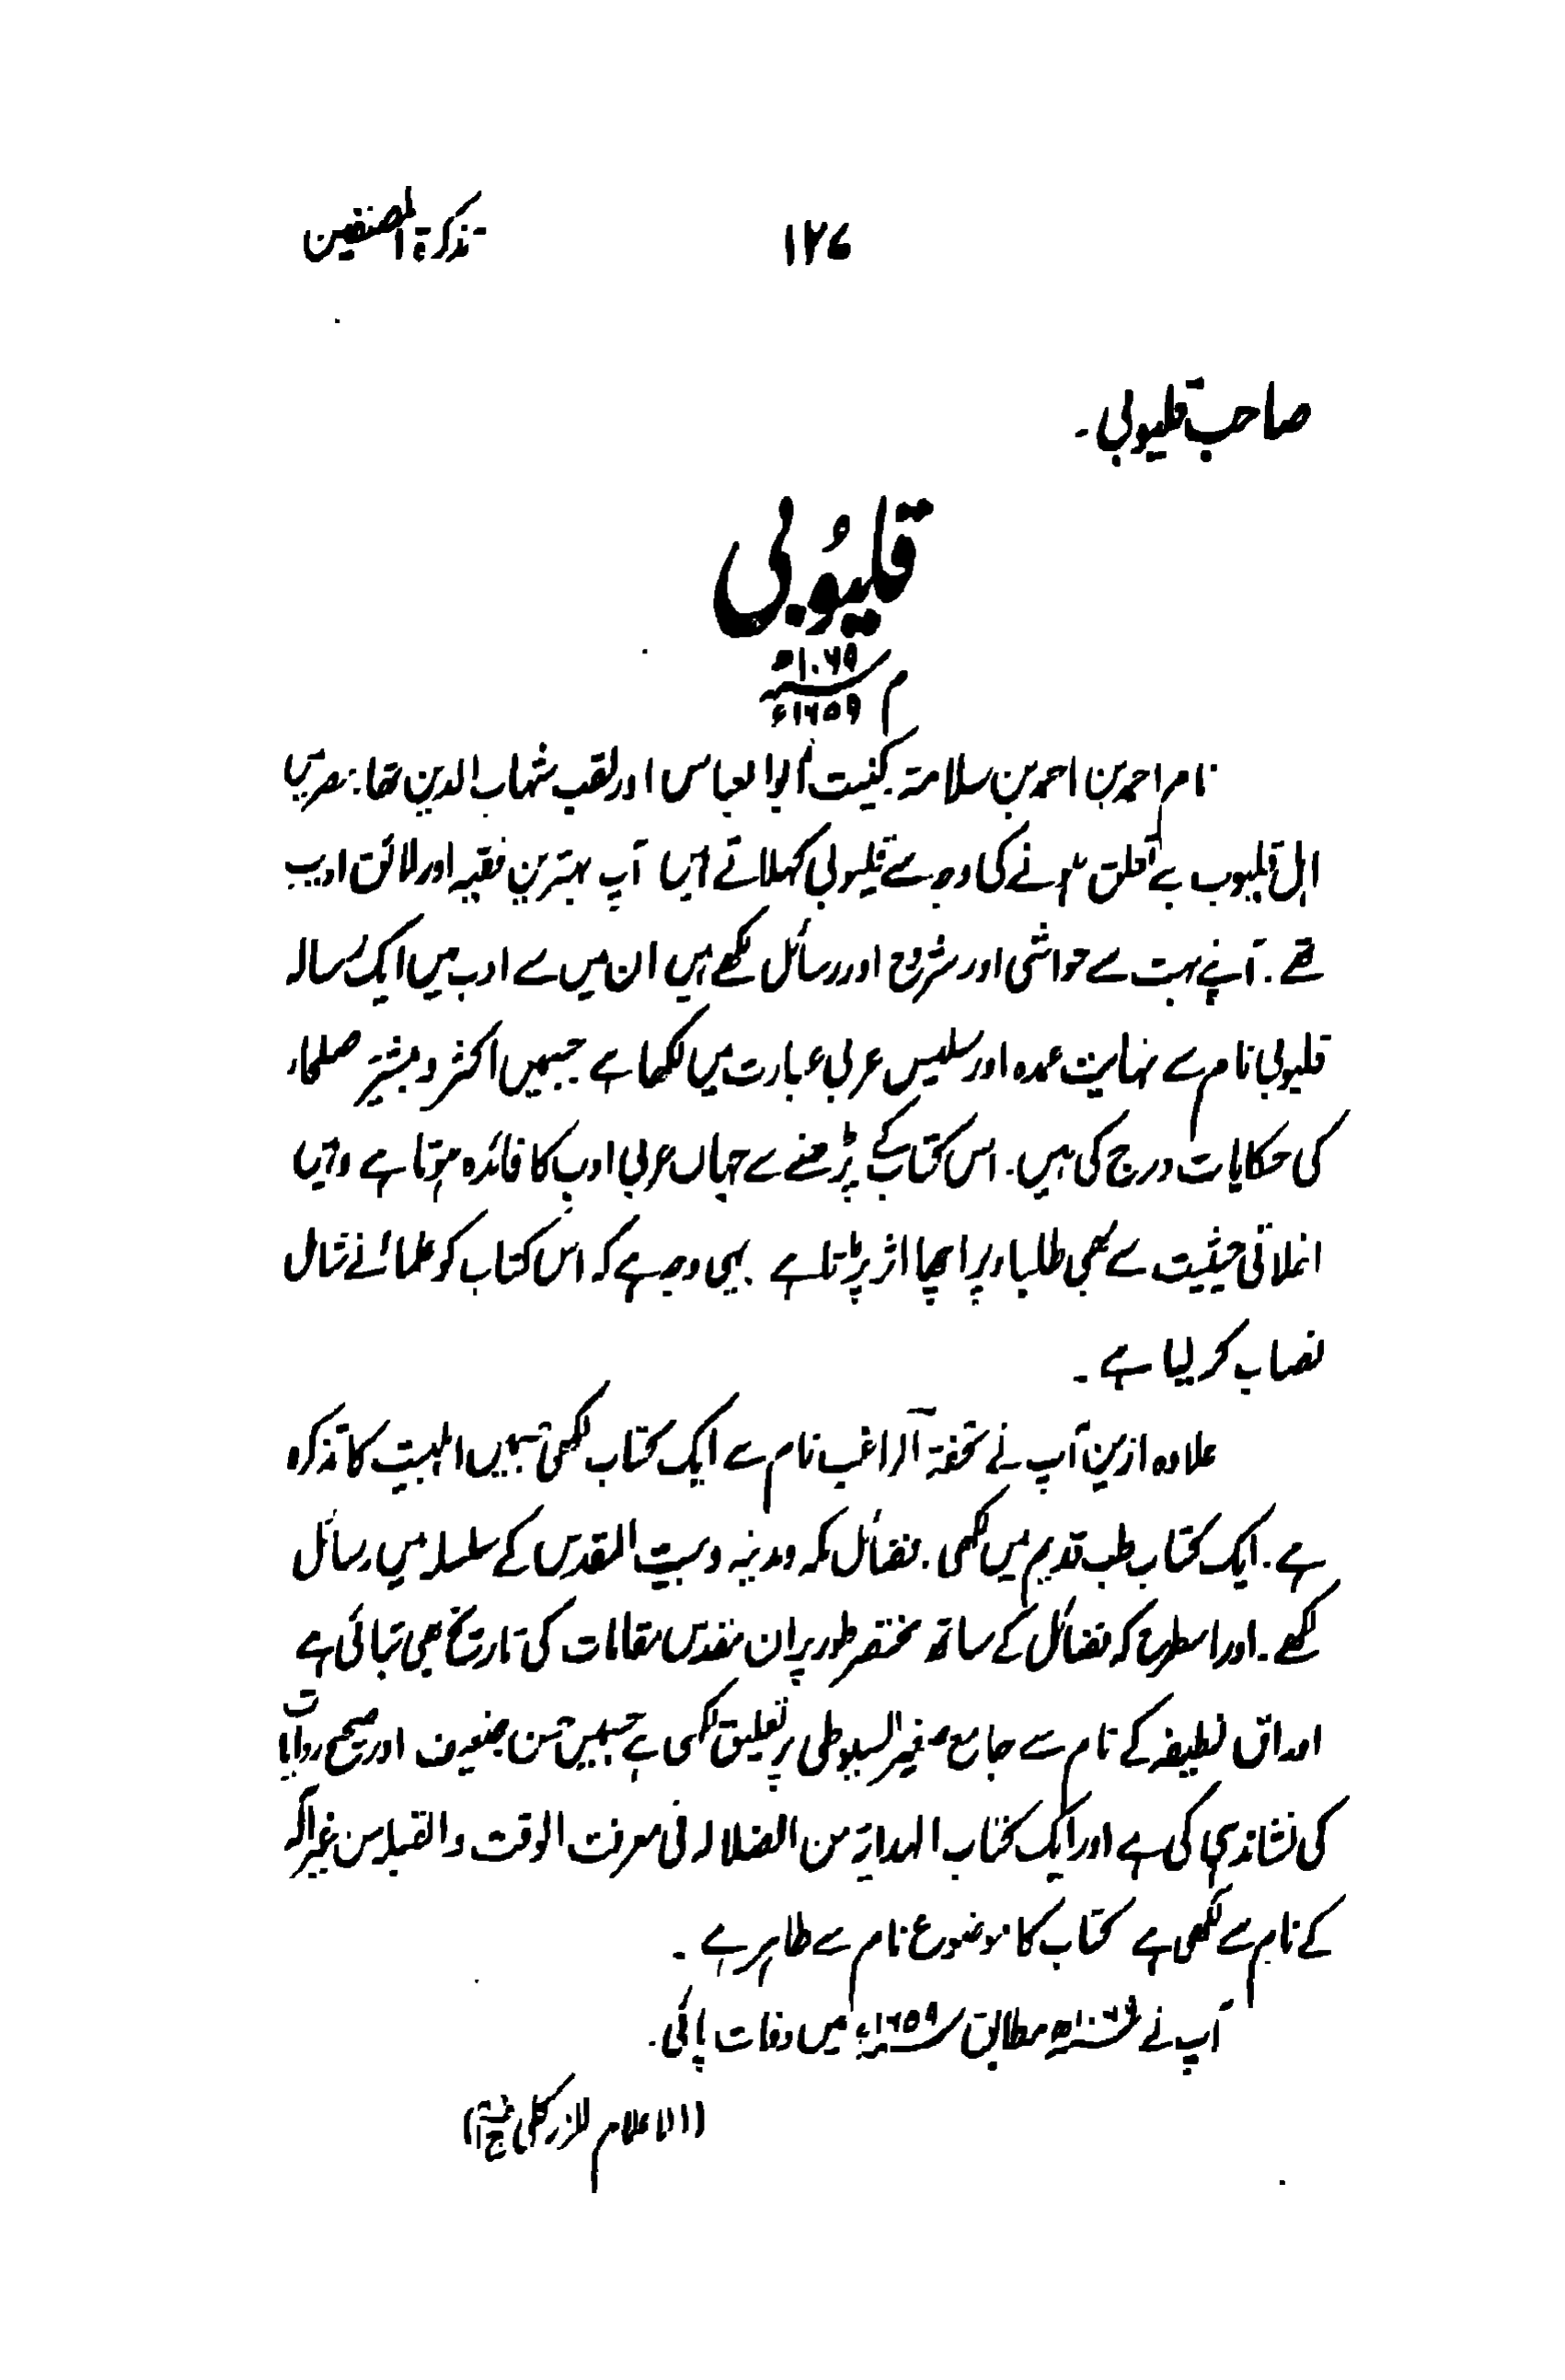 تذکرۃ المصنفین
۱۲۷
صاحب قلیوبی ۔
قلیُوبی
م ۱۰۶۹ھ
۱۶۵۹ء
نام احمد بن احمد بن سلامتہ کنیت ابوالعباس اور لقب شہاب الدین تھا
اہل قلیوب سے تعلق ہونے کی وجہ سے قلیوبی کہلاتے ہیں آپ بہترین فقیہ اور لائق ادیب
تھے ۔ آپنے بہت سے حواشی اور شروح اور رسائل لکھے ہیں ان میں سے ادب میں ایک رسالہ
قلیوبی نام سے نہایت عمدہ اور سلیس عربی عبارت میں لکھا ہے جسمیں اکثر و بیشتر صلحاء
کی حکایات درج کی ہیں ۔ اس کتاب کے پڑھنے سے جہاں عربی ادب کا فائدہ ہوتا ہے وہیں
اخلاقی حیثیت سے بھی طلباء پر اچھا اثر پڑتا ہے یہی وجہ ہے کہ اس کتاب کو علماء نے شامل
نصاب کر لیا ہے ۔
علاوہ ازین آپ نے تحفۃ الراغب نام سے ایک کتاب لکھی جسمیں اہلبیت کا تذکرہ
ہے ۔ ایک کتاب طب قدیم میں لکھی ۔ فضائل مکہ و مدینہ و بیت المقدس کے سلسلہ میں رسائل
لکھے ۔ اور اسطرح کہ فضائل کے ساتھ مختصر طور پر ان مقدس مقامات کی تاریخ بھی بتائی ہے
اوراق لطیفہ کے نام سے جامع صغیر السیوطی پر تعلیق لکھی ہے جسمیں حسن ضعیف اور صحیح روایات
کی نشاندہی کی ہے اور ایک کتاب الہدایۃ من الضلالہ فی معرفت الوقت والقبلہ من غیر آلہ
کے نام سے لکھی ہے کتاب کا موضوع نام سے ظاہر ہے ۔
آپ نے ۱۰۶۹ھ مطابق ۱۶۵۹ء میں وفات پائی ۔
(الاعلام للزرکلی